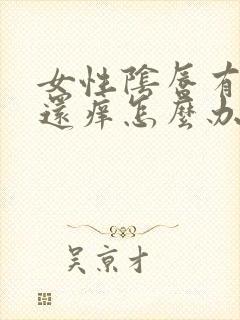 女性陰唇有
還癢怎麼办
吴京才